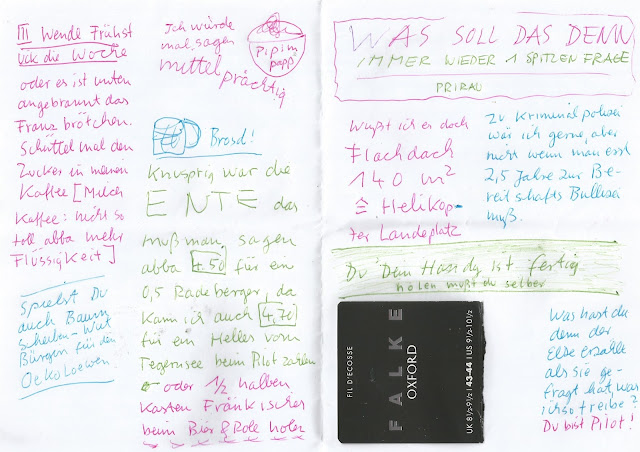 III Wende Frühst
ück die Woche
oder es ist unten
angebrannt das
Franzbrötchen.
Schüttel mal den
Zucker in meinen
Kaffee [Milch
Kaffee: nicht so
toll abba mehr
Flüssigkeit]
Spielst Du
auch Baum
scheiben-Wat
Bürgen für den
Oekoloewen.
Ich würde
mal sagen
mittel
prächtig
Pipim
papp
Brosd!
Knusprig war die
ENTE das
muß man sagen
abba 4,50 für ein
0,5 Radeberger, da
kann ich auch 4,70
für ein Helles vom
Tegernsee beim Pilot zahlen
oder 1/2 halben
Kasten Fränkisches
beim Bier & Role holen
WAS SOLL DAS DENN
IMMER WIEDER 1 SPITZEN FRAGE
PRIRAU
Wußt ich es doch
Flachdach
140 m²
≙ Helikop-
ter Landeplatz
Zu Kriminalpolizei
wär ich gerne, aber
nicht wenn man erst
2,5 Jahre zur Be-
reitschafts Bullizei
muß.
Du Dein Handy ist fertig
holen mußt du selber
FIL D'ECOSSE
FALKE
OXFORD
UK 8½-9½ | 43-44 | US 9½-10½
Was hast du
denn der
Elbe erzählt
als sie ge-
fragt hat, was
ich so treibe?
Du bist Pilot!